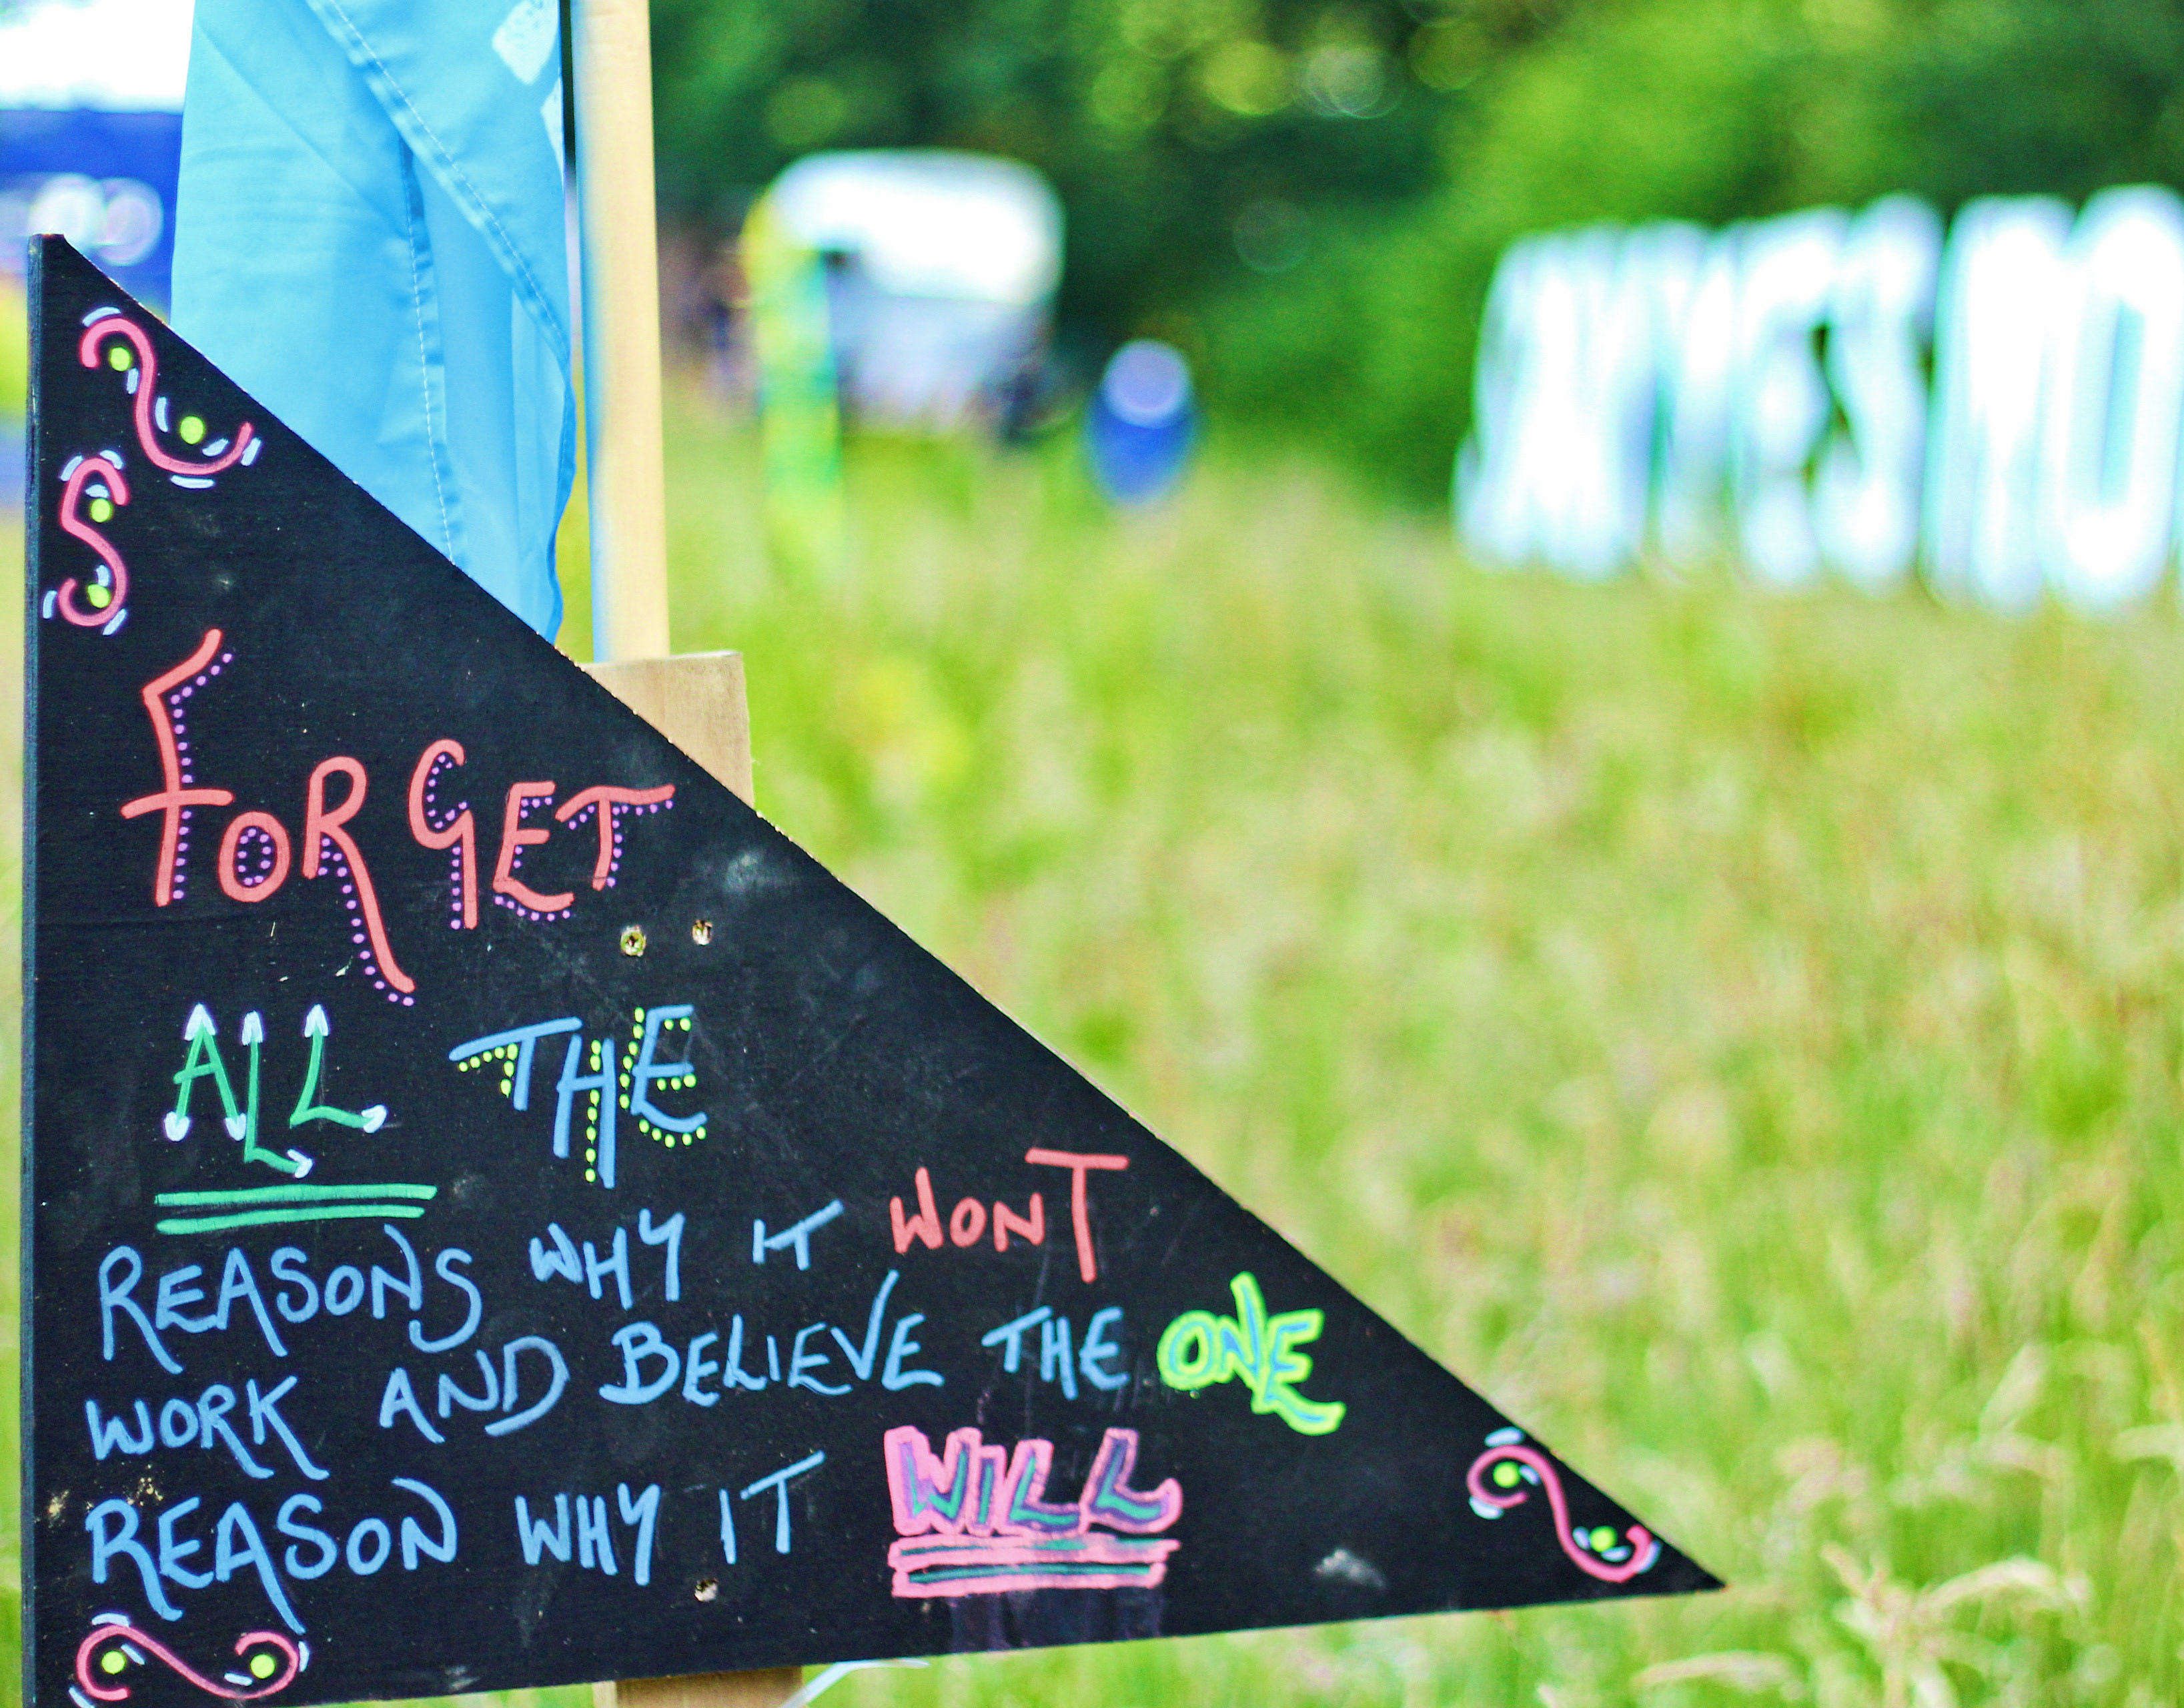 FORGET
ALL THE
REASONS WHY IT WONT
WORK AND BELIEVE THE ONE
REASON WHY IT WILL